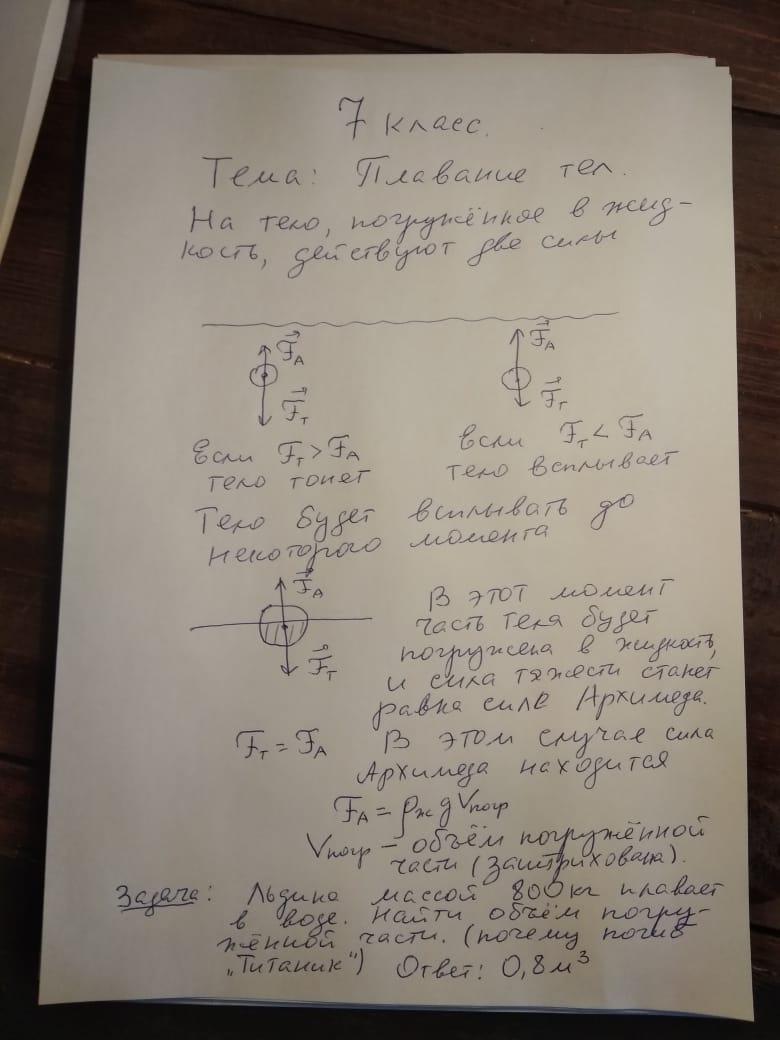 7 класс.
Тема: Плавание тел.
На тело, погружённое в жид-
кость, действуют две силы
F⃗А F⃗А
F⃗т F⃗т
Если Fт > FА если Fт < FА
тело тонет тело всплывает
Тело будет всплывать до
некоторого момента
F⃗А
В этот момент
часть тела будет
погружена в жидкость,
F⃗т
и сила тяжести станет
равна силе Архимеда.
Fт = FА В этом случае сила
Архимеда находится
FА = ρж g Vпогр
Vпогр – объём погружённой
части (заштрихована).
Задача: Льдина массой 800кг плавает
в воде. Найти объём погру-
жённой части. (почему погиб
„Титаник") Ответ: 0,8м³